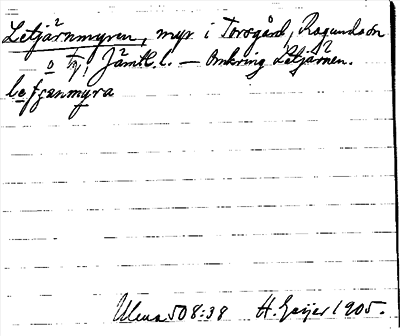 Letjärnmyren, myr i Torsgård, Ragunda sn
o tg, Jämtl. l. — Omkring Letjärnen.
letjenmyra
Uleus 508:38 H. Geijer 1905.